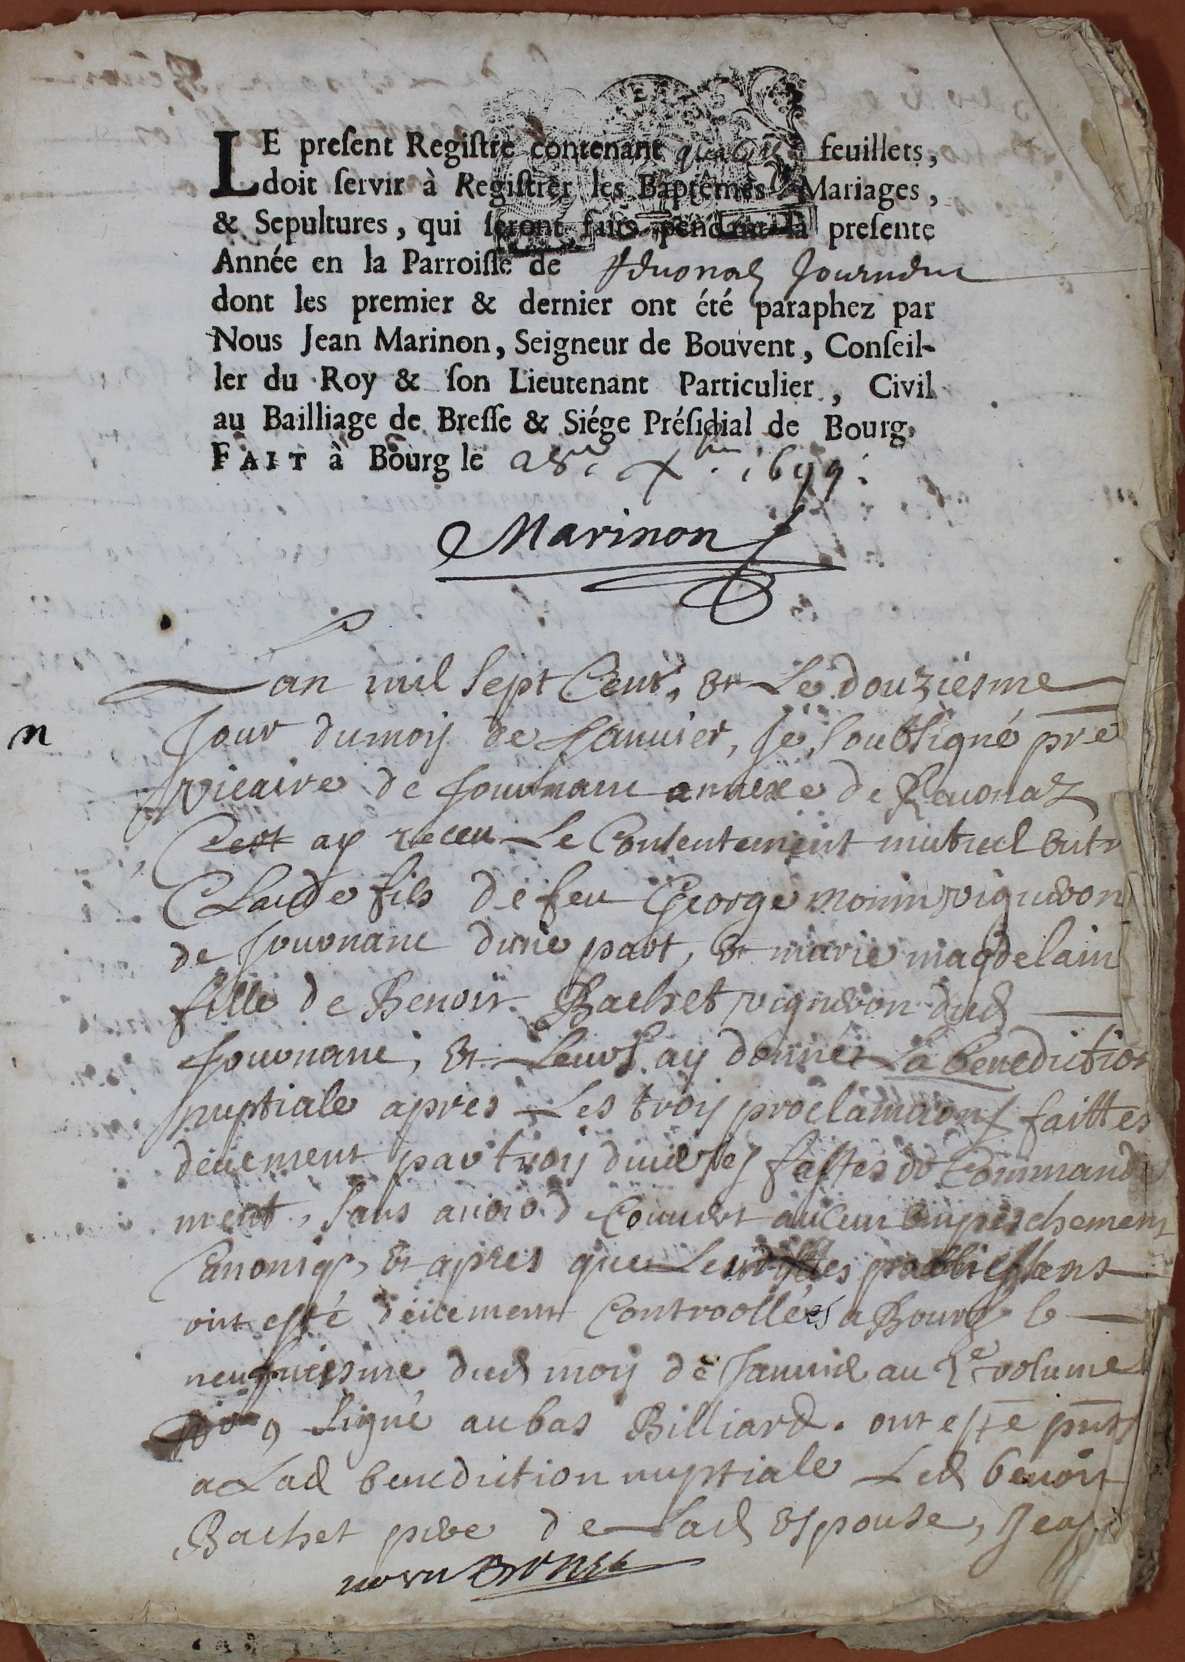 LE preſent Regiſtre contenant feuillets,
doit ſervir à Regiſtrer les Baptêmes Mariages,
& Sepultures, qui ſeront faits pendant la preſente
Année en la Parroiſſe de Journanc
dont les premier & dernier ont été paraphez par
Nous Jean Marinon, Seigneur de Bouvent, Conſeil-
ler du Roy & ſon Lieutenant Particulier, Civil
au Bailliage de Breſſe & Siége Préſidial de Bourg,
FAIT à Bourg le 28e Xbre 1699.
Marinon
Lan mil Sept Cent, et Le douziesme
n
Jour du moy de Januier, Je Soubsigné pre
vicaire de Journanc annexe de Reuonaz
Cert ay receu Le Consentement mutuel Entr
Claude fils de feu George monin vigneron
de Journanc dune part, et marie magdelain
fille de Benoit Bachet vigneron dud
Journanc, et Leurs ay donnée La benediction
nuptiale apres Les troy proclamaons faittes
deuement par troy diuerses festes de Commande
ment, sans auoir decouuert aucun empeschement
Canoniq, et apres que Les dittes
ont esté deuement Controollées a Bourg le
neufuiesme dud moy de Januier au 2e volume
Signé au bas Billiard. ont este pnts
a Lad benediction nuptiale Led benoit
Bachet pere de Lad Espouse, Jean